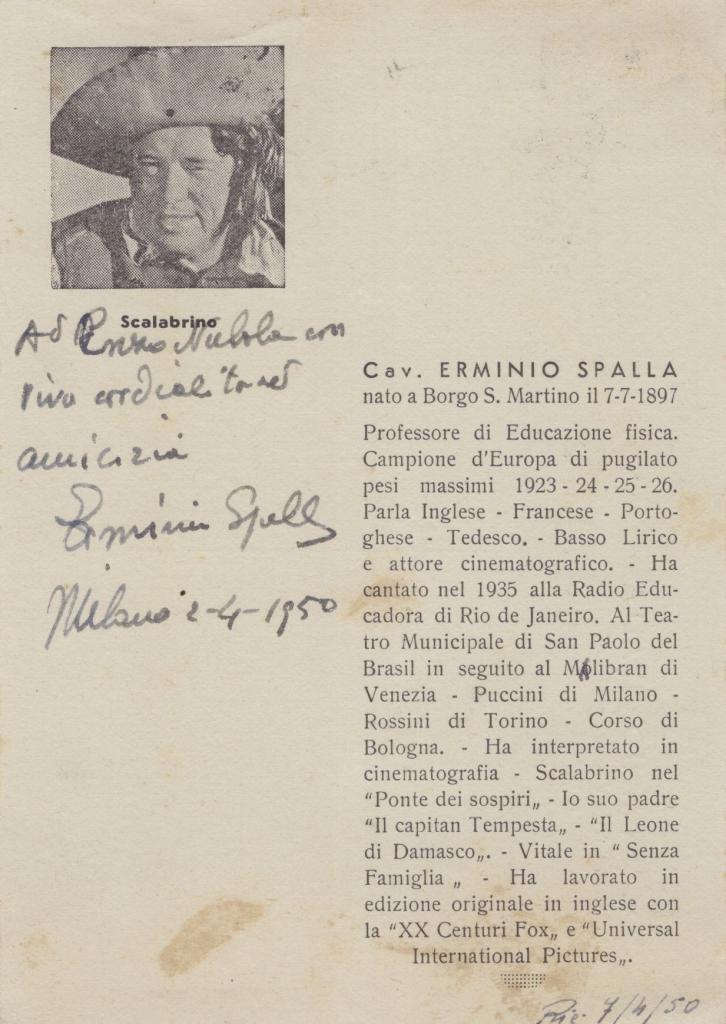 Scalabrino
Ad Enzo Nubola con
viva cordialità ed
amicizia
Erminio Spalla
Milano 2-4-1950
Cav. ERMINIO SPALLA
nato a Borgo S. Martino il 7-7-1897
Professore di Educazione fisica.
Campione d'Europa di pugilato
pesi massimi 1923 - 24 - 25 - 26.
Parla Inglese - Francese - Porto-
ghese - Tedesco. - Basso Lirico
e attore cinematografico. - Ha
cantato nel 1935 alla Radio Edu-
cadora di Rio de Janeiro. Al Tea-
tro Municipale di San Paolo del
Brasil in seguito al Malibran di
Venezia - Puccini di Milano -
Rossini di Torino - Corso di
Bologna. - Ha interpretato in
cinematografia - Scalabrino nel
"Ponte dei sospiri„ - Io suo padre
"Il capitan Tempesta„ - "Il Leone
di Damasco„. - Vitale in " Senza
Famiglia „ - Ha lavorato in
edizione originale in inglese con
la "XX Centuri Fox„ e "Universal
International Pictures„.
Ric. 7/4/50